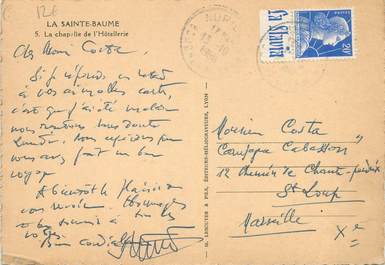 12€
LA SAINTE-BAUME
5. La chapelle de l'Hôtellerie
Cher Monsieur Costa
Si je réponds en retard
à vos aimables cartes,
c'est que j'ai été malade
nous rentrons sans doute
Lundi. Nous espérons que
vous avez fait un bon
voyage
A bientôt le plaisir de
vous revoir. Hommages
et bon souvenir à tous les
vôtres
Bien cordialement
M. LESCUYER & FILS, ÉDITEURS-HÉLIOGRAVEURS, LYON
20F
Monsieur Costa
Campagne Cabasson
12 Chemin de Chante-perdrix
St Loup
Marseille
Xe